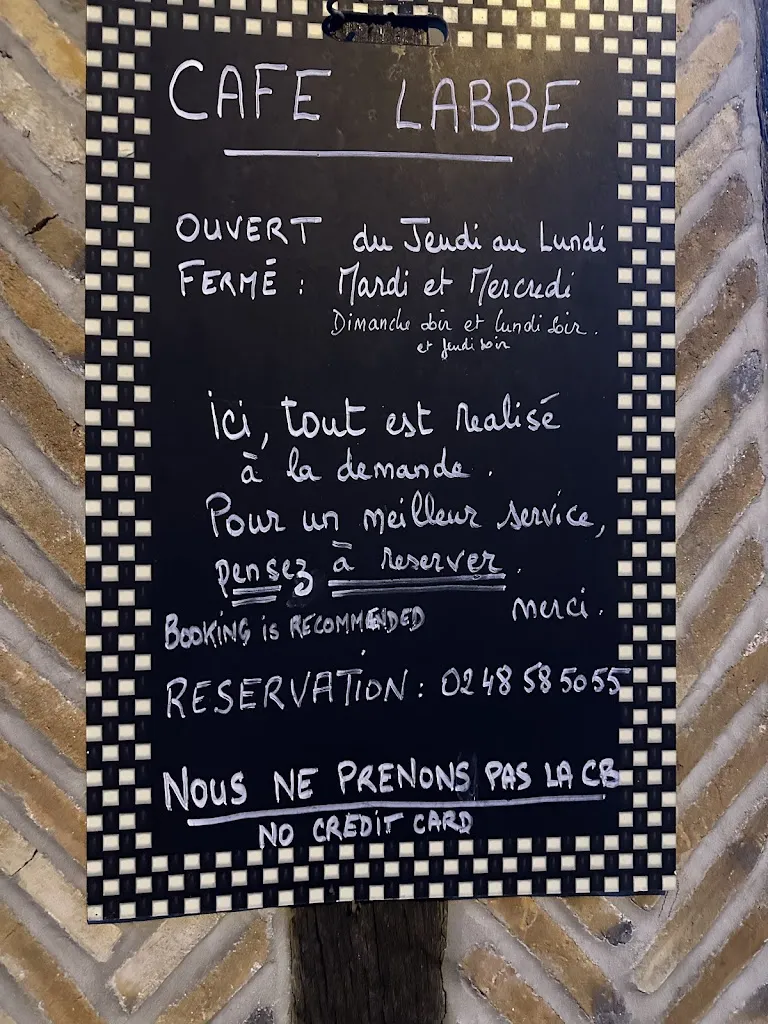 CAFE LABBE
OUVERT du Jeudi au Lundi
FERMÉ : Mardi et Mercredi
Dimanche soir et lundi soir.
et jeudi soir
Ici, tout est realisé
à la demande.
Pour un meilleur service,
pensez à reserver.
merci.
BOOKING is RECOMMENDED
RESERVATION : 02 48 58 50 55
NOUS NE PRENONS PAS LA CB
NO CREDIT CARD